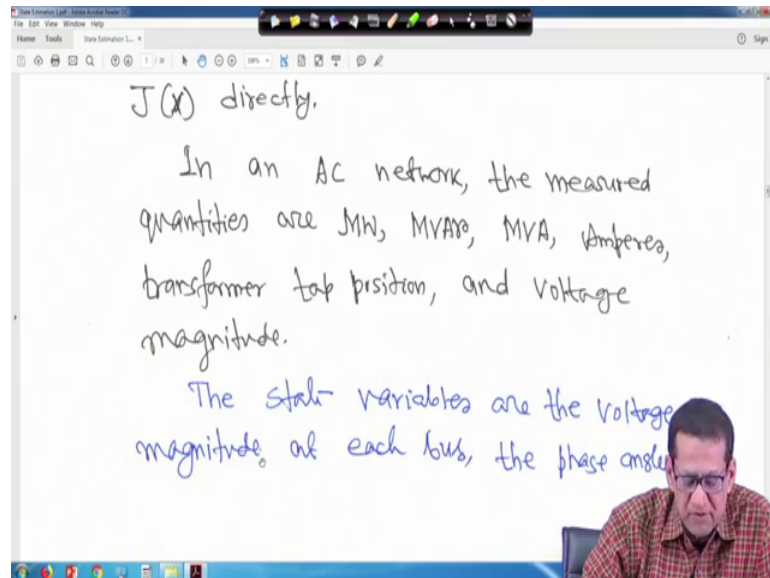 State Estimation 1.pdf - Adobe Acrobat Reader DC
File Edit View Window Help
Home Tools State Estimation 1... ×
Sign
7
J(x) directly.
In an AC network, the measured
quantities are MW, MVAR, MVA, Amperes,
transformer tap position, and voltage
magnitude.
The state variables are the voltage
magnitude at each bus, the phase angle